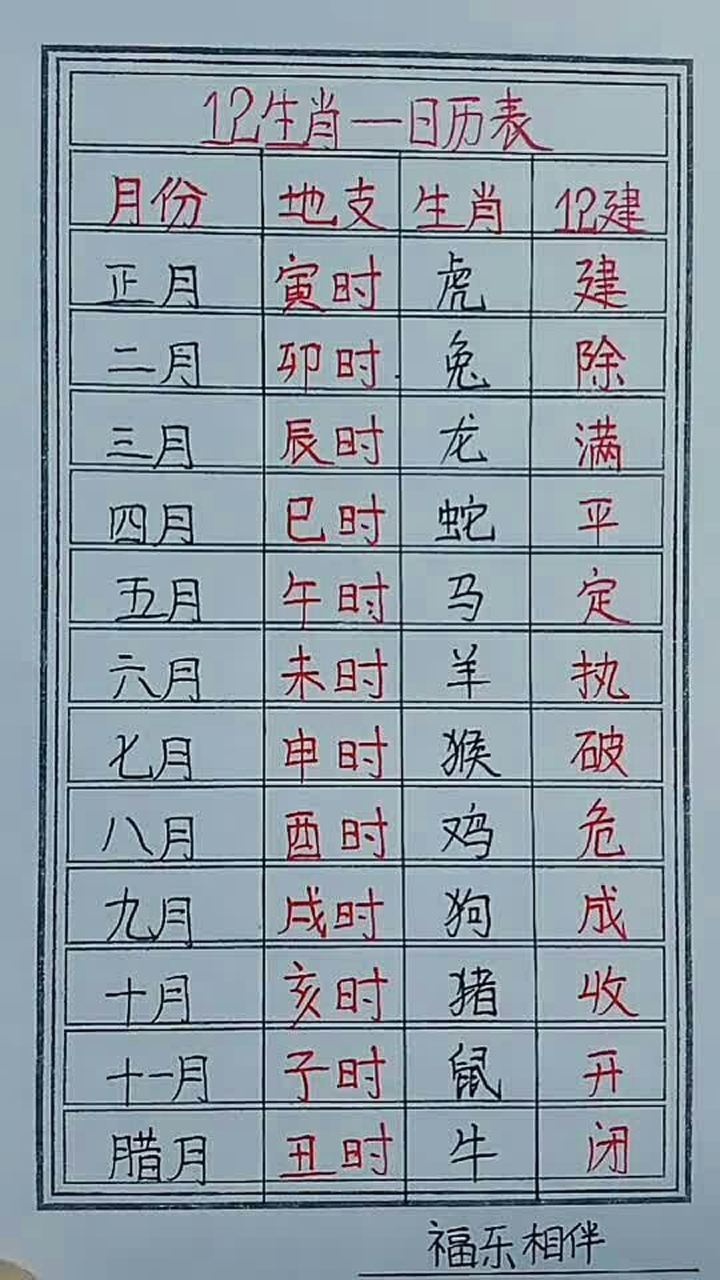 12生肖一日历表
月份 地支 生肖 12建
正月 寅时 虎 建
二月 卯时 兔 除
三月 辰时 龙 满
四月 巳时 蛇 平
五月 午时 马 定
六月 未时 羊 执
七月 申时 猴 破
八月 酉时 鸡 危
九月 戌时 狗 成
十月 亥时 猪 收
十一月 子时 鼠 开
腊月 丑时 牛 闭
福乐相伴